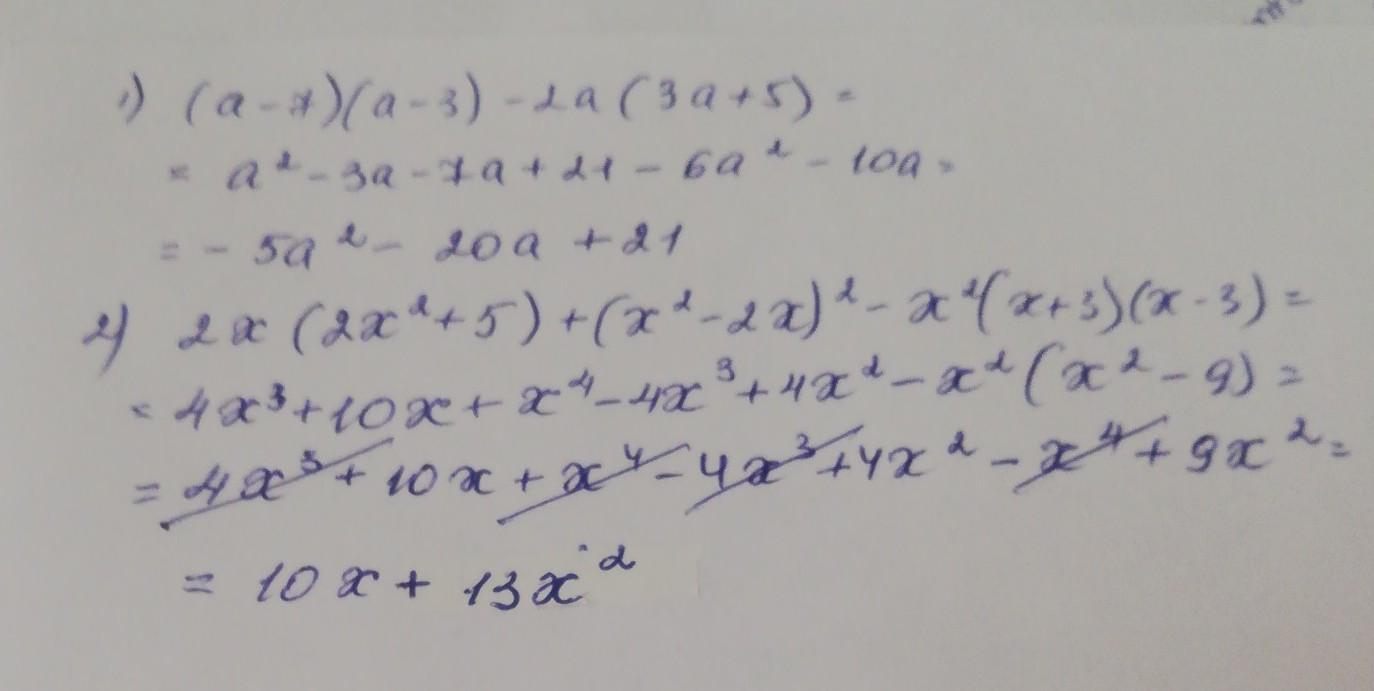 1) (a-7)(a-3)-2a(3a+5)=
= a²-3a-7a+21-6a²-10a=
= -5a²-20a+21
2) 2x(2x²+5)+(x²-2x)²-x²(x+3)(x-3)=
= 4x³+10x+x⁴-4x³+4x²-x²(x²-9)=
= 4x³+10x+x⁴-4x³+4x²-x⁴+9x²=
= 10x+13x²